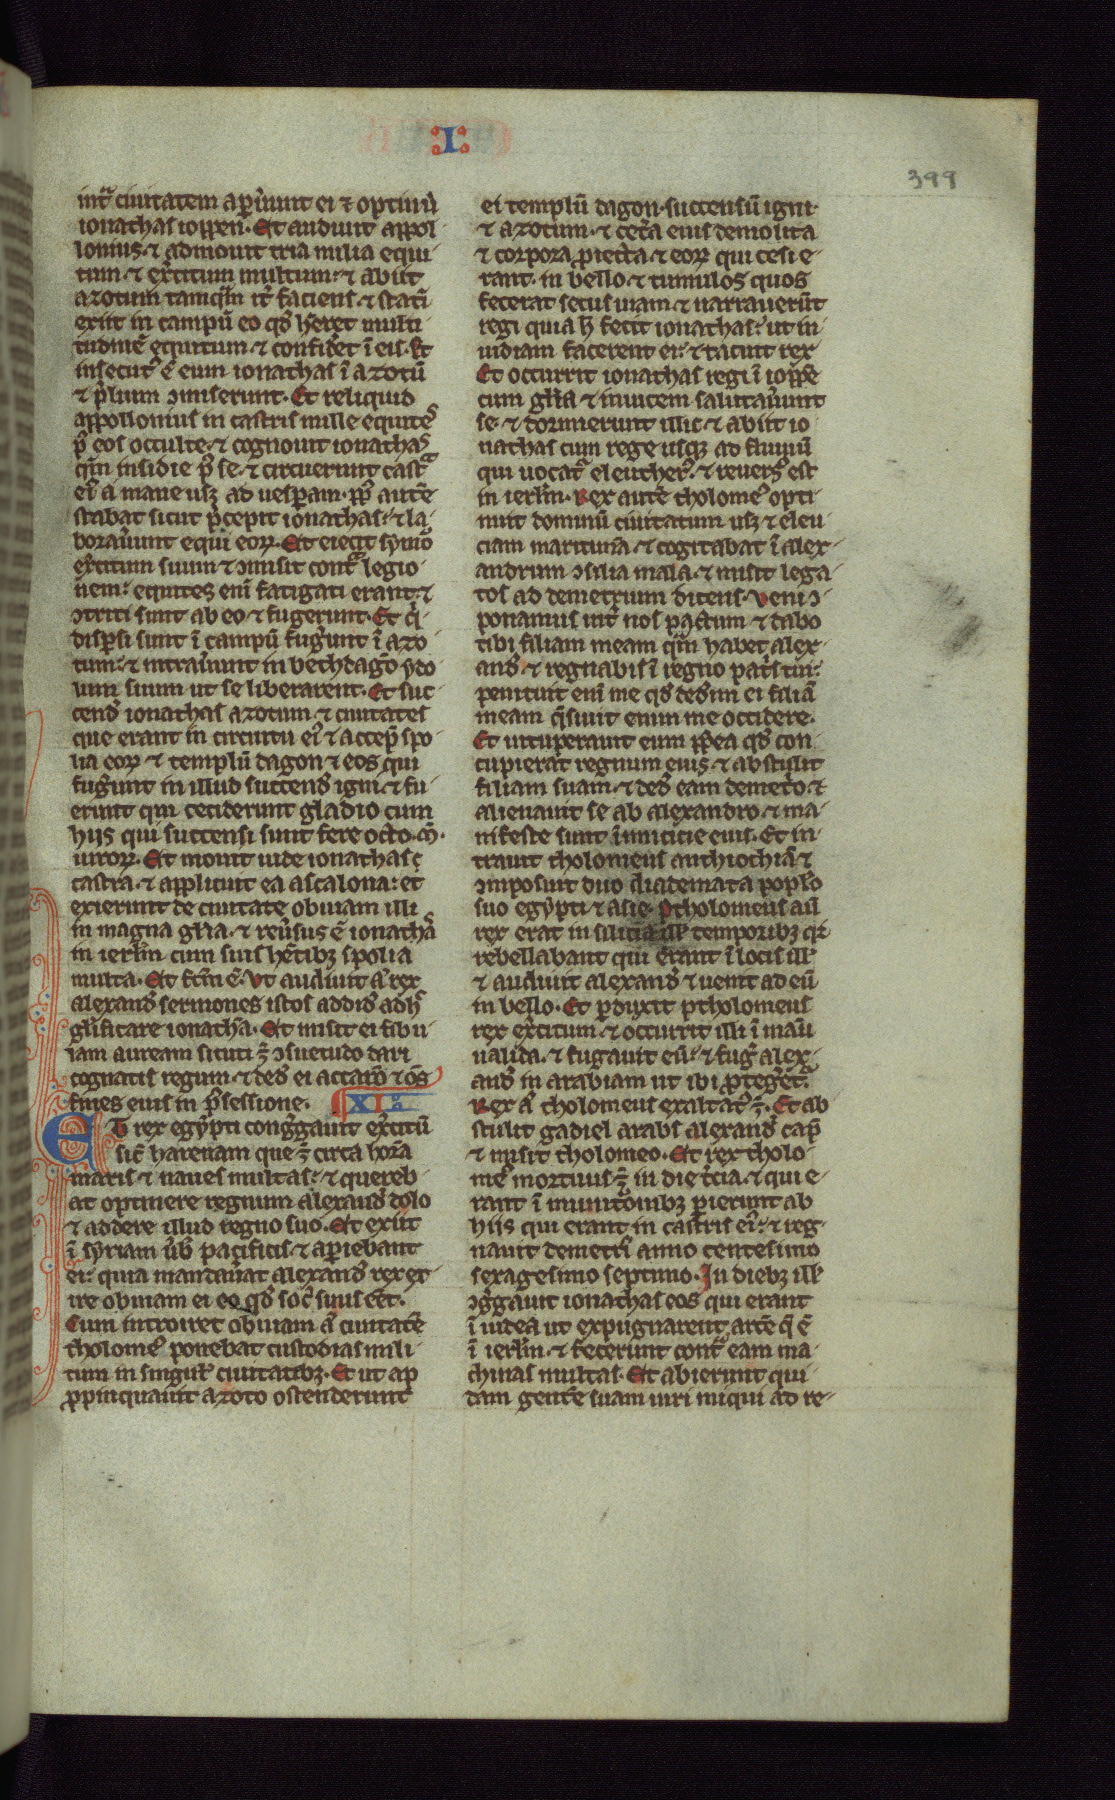 I
399
int᷑ ciuitatem apͥuunt ei ⁊ optinuͥ
ionathas ioppen. Et audiuit appol
lonius. ⁊ admouit tria milia equi
tum. ⁊ exͥcitum multum. ⁊ abiit
azotum tamqͣm it᷑ faciens. ⁊ statī
exiit in campū eo qđ hͥet multi
tudinē equitum. ⁊ confidet ī eis. Et
insecut᷒ ē eum ionathas ī azotū
⁊ p̄lium ɔmiserunt. Et reliquid
appollonius in castris mille equites
pꝰ eos occulte. ⁊ cognouit ionathas
qm̄ insidie pꝰ se. ⁊ circuerunt castͣ
eiꝰ a mane usꝫ ad uesꝑam. ppl̓s autē
stabat sicut p̄cepit ionathas. ⁊ la
borauunt equi eoꝝ. Et eiecit symō
exͥcitum suum ⁊ ɔmisit contͣ legio
nem. equites enī fatigati erant. ⁊
ɔtriti sunt ab eo ⁊ fugerunt. Et qͥ
disꝑsi sunt ī campū fugunt ī azo
tum. ⁊ intrauunt in bethdagō ydo
lum suum ut se liberarent. Et suc
cendͥ ionathas azotum ⁊ ciuitates
que erant in circuitu eiꝰ ⁊ accepͥ spo
lia eoꝝ ⁊ templū dagon ⁊ eos qui
fugunt in illud succendͥ igni. ⁊ fu
erunt qui ceciderunt gladio cum
hijs qui succensi sunt fere octo. m̄.
uiroꝝ. Et mouit inde ionathas
castra. ⁊ applicuit ea ascalona. et
exierunt de ciuitate obuiam illi
in magna gl̄ia. ⁊ reuͥsus ē ionathas
in ierl̄m cum suis hn̄tibꝫ spolia
multa. Et fcm̄ ē. Vt audiuit aͣ rex
alexandͥ sermones istos addidͥ adhͨ
glificare ionathā. Et misit ei fibu
lam auream sicuti ē ɔsuetudo dari
cognatis regum. ⁊ dedͥ ei accarō ⁊ oēs
fines eius in p̄sessione. XI.
Et rex egypti congͥgauit exͥcitū
sic̄ harenam que ē circa horā
maris. ⁊ naues multas. ⁊ quereb
at optinere regnum alexandͥ dolo
⁊ addere illud regno suo. Et exiit
ī syriam ūb̄ pacificis. ⁊ aperiebant
ei. quia mandauat alexandͥ rex ex
ire obuiam ei eo qđ soc̄ suus eet.
Cum introiret obuiam aͣ ciuitatē
tholomeꝰ ponebat custodias mili
tum in singul̓ ciuitatibꝫ. Et ut ap
propinquauit azoto ostenderunt
ei templū dagon. succensū igni.
⁊ azotum. ⁊ cetͣa eius demolita
⁊ corpora proiecta. ⁊ eoꝝ qui cesi e
rant. in bello. ⁊ tumulos quos
fecerat secus uiam. ⁊ narrauerūt
regi quia h̄ fecit ionathas. ut in
uidiam facerent ei. ⁊ tacuit rex
Et occurrit ionathas regi ī ioppē
cum gl̄ia ⁊ inuicem salutauunt
se. ⁊ dormierunt illic. ⁊ abiit io
nathas cum rege usqꝫ ad fluuiū
qui uocatͬ eleutherꝰ. ⁊ reuersꝰ est
in ierl̄m. Rex autē tholomeꝰ opti
nuit dominū ciuitatum usꝫ ⁊ eleu
ciam maritimā. ⁊ cogitabat ī alex
andrum ɔsilia mala. ⁊ misit lega
tos ad demetrium dicens. Veni ɔ
ponamus int᷑ nos pactum ⁊ dabo
tibi filiam meam qͣm habet alex
andͥ. ⁊ regnabis ī regno patͥs tui.
penituit enī me qđ dedim ei filiā
meam q̄siuit enim me occidere.
Et uituperauit eum ꝓpterea qđ con
cupierat regnum eius. ⁊ abstulit
filiam suam. ⁊ dedͥ eam demetͥo. ⁊
alienauit se ab alexandro. ⁊ ma
nifeste sunt inimicicie eius. Et in
trauit tholomeus anthiochiā ⁊
ɔmposuit duo diademata poplo
suo egypti ⁊ asie. Ptholomeus aū
rex erat in silicia ill̓ temporibꝫ qͥ
rebellabant qui erant ī locis ill̓
⁊ audiuit alexandͥ ⁊ uenit ad eū
in bello. Et produxit ptholomeus
rex exͥcitum. ⁊ occurrit illi ī manu
ualida. ⁊ fugauit eū. ⁊ fugͥ alex
andͥ in arabiam ut ibi protegͥet.
Rex aͣ tholomeus exaltatꝰ ē. Et ab
stulit gadiel arabs alexandͥ capͥ
⁊ misit tholomeo. Et rex tholo
meꝰ mortuus ē in die tͥcia. ⁊ qui e
rant ī munitōnibꝫ ꝑierunt ab
hijs qui erant in castris eiꝰ. ⁊ reg
nauit demetriꝰ anno centesimo
sexagesimo septimo. In diebꝫ ill̓
ɔgͥgauit ionathas eos qui erant
ī iudea ut expugnarent artē q̄ ē
ī ierl̄m. ⁊ fecerunt contͣ eam ma
chinas multas. Et abierunt qui
dam gentē suam uiri iniqui ad re